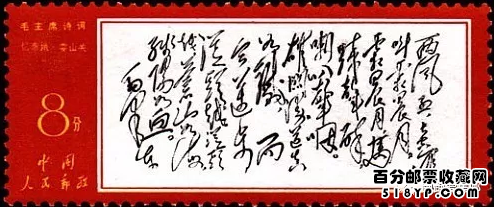 毛主席诗词
忆秦娥·娄山关
8分
中国
人民邮政
西风烈长空雁
叫霜晨月
霜晨月马
蹄声碎
喇叭声咽
雄关漫道真
如铁而
今迈步
从头越从头
越苍山如海
残阳如血
毛泽东
百分邮票收藏网
518YP.com